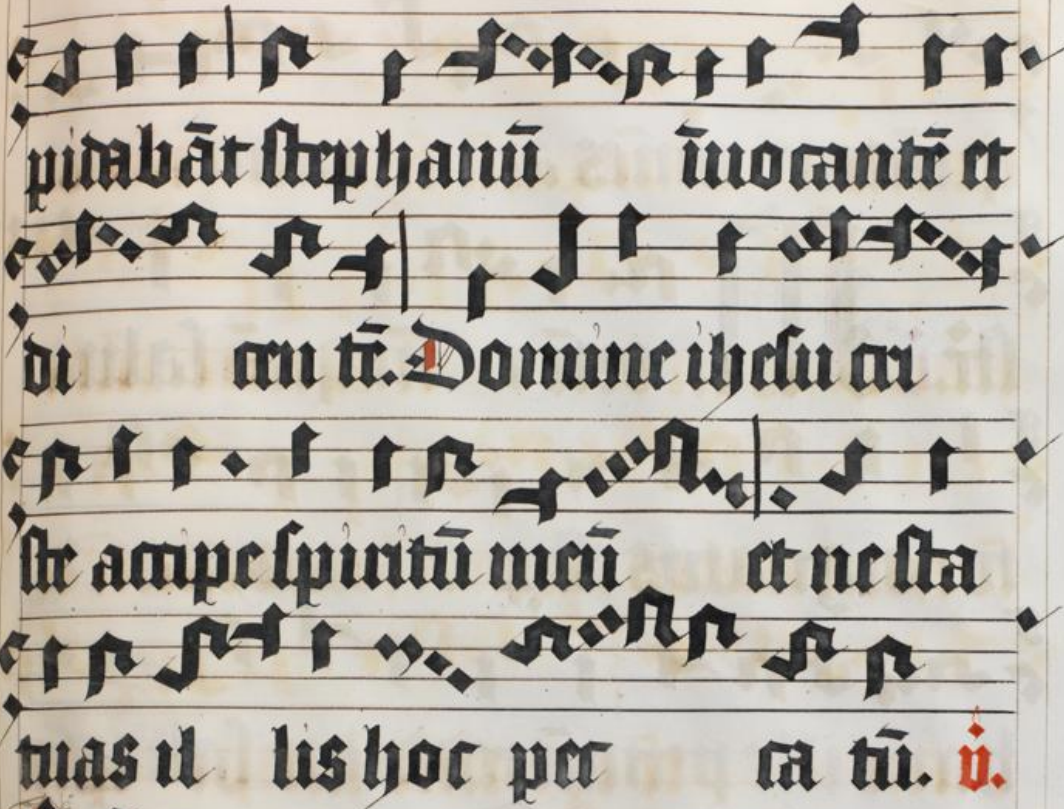 pidabāt stephanū īuocantē et
di cen tē. Domine ihesu cri
ste accipe spiritū meū et ne sta
tuas il lis hoc pec ca tū. v.